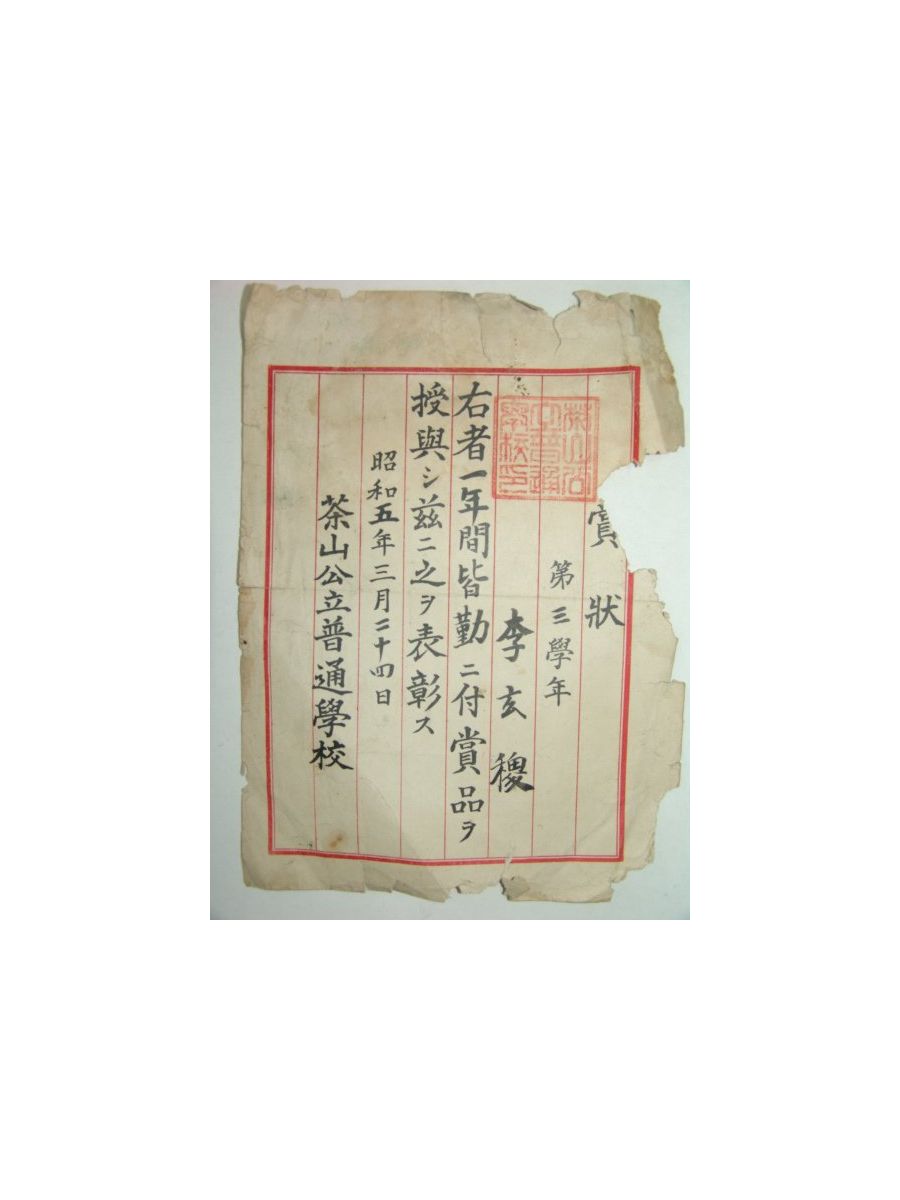 賞狀
第三學年
李玄稷
右者一年間皆勤ニ付賞品ヲ
授與シ兹ニ之ヲ表彰ス
昭和五年三月二十四日
茶山公立普通學校
茶山公
立普通
學校印